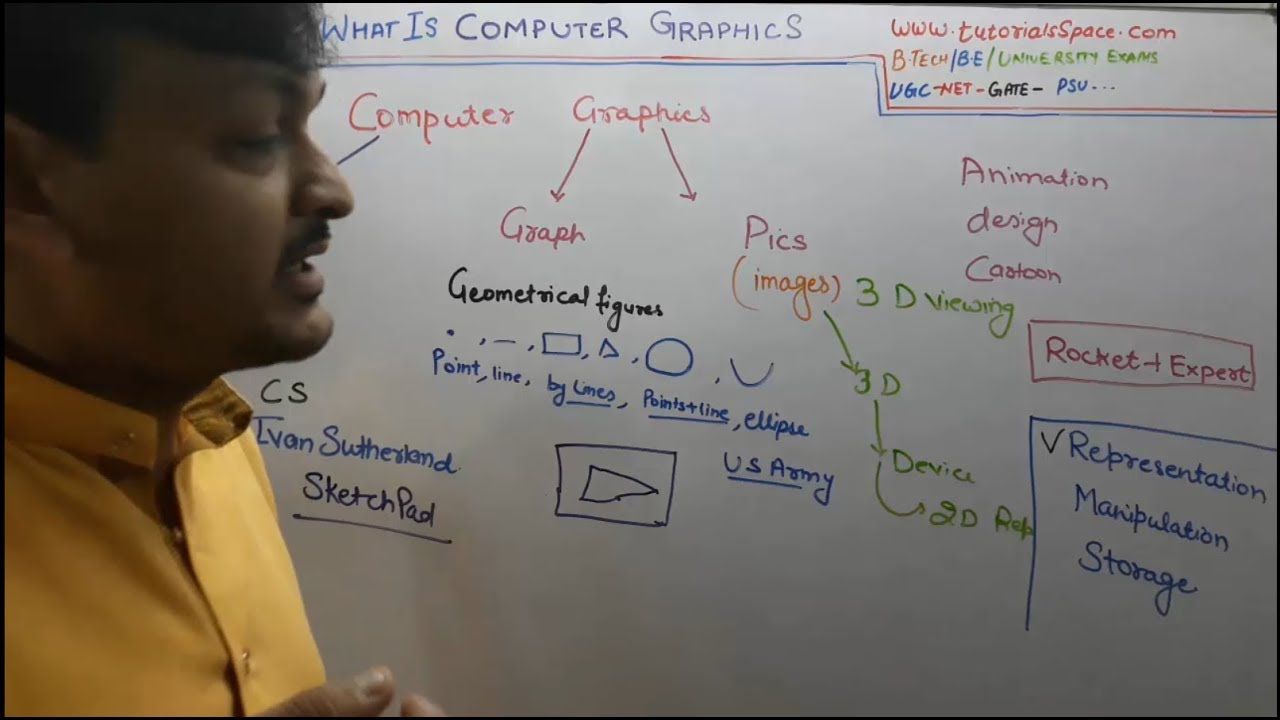 WHAT IS COMPUTER GRAPHICS
www.tutorialsSpace.com
B.TECH/B.E/UNIVERSITY EXAMS
UGC-NET-GATE- PSU...
Computer Graphics
Graph
Pics
(images)
Animation
design
Cartoon
Geometrical figures
3 D viewing
Point, line, by lines, Points+line, ellipse
3 D
Rocket + Expert
CS
Ivan Sutherland
SketchPad
US Army
Device
2D Rep
✓Representation
Manipulation
Storage